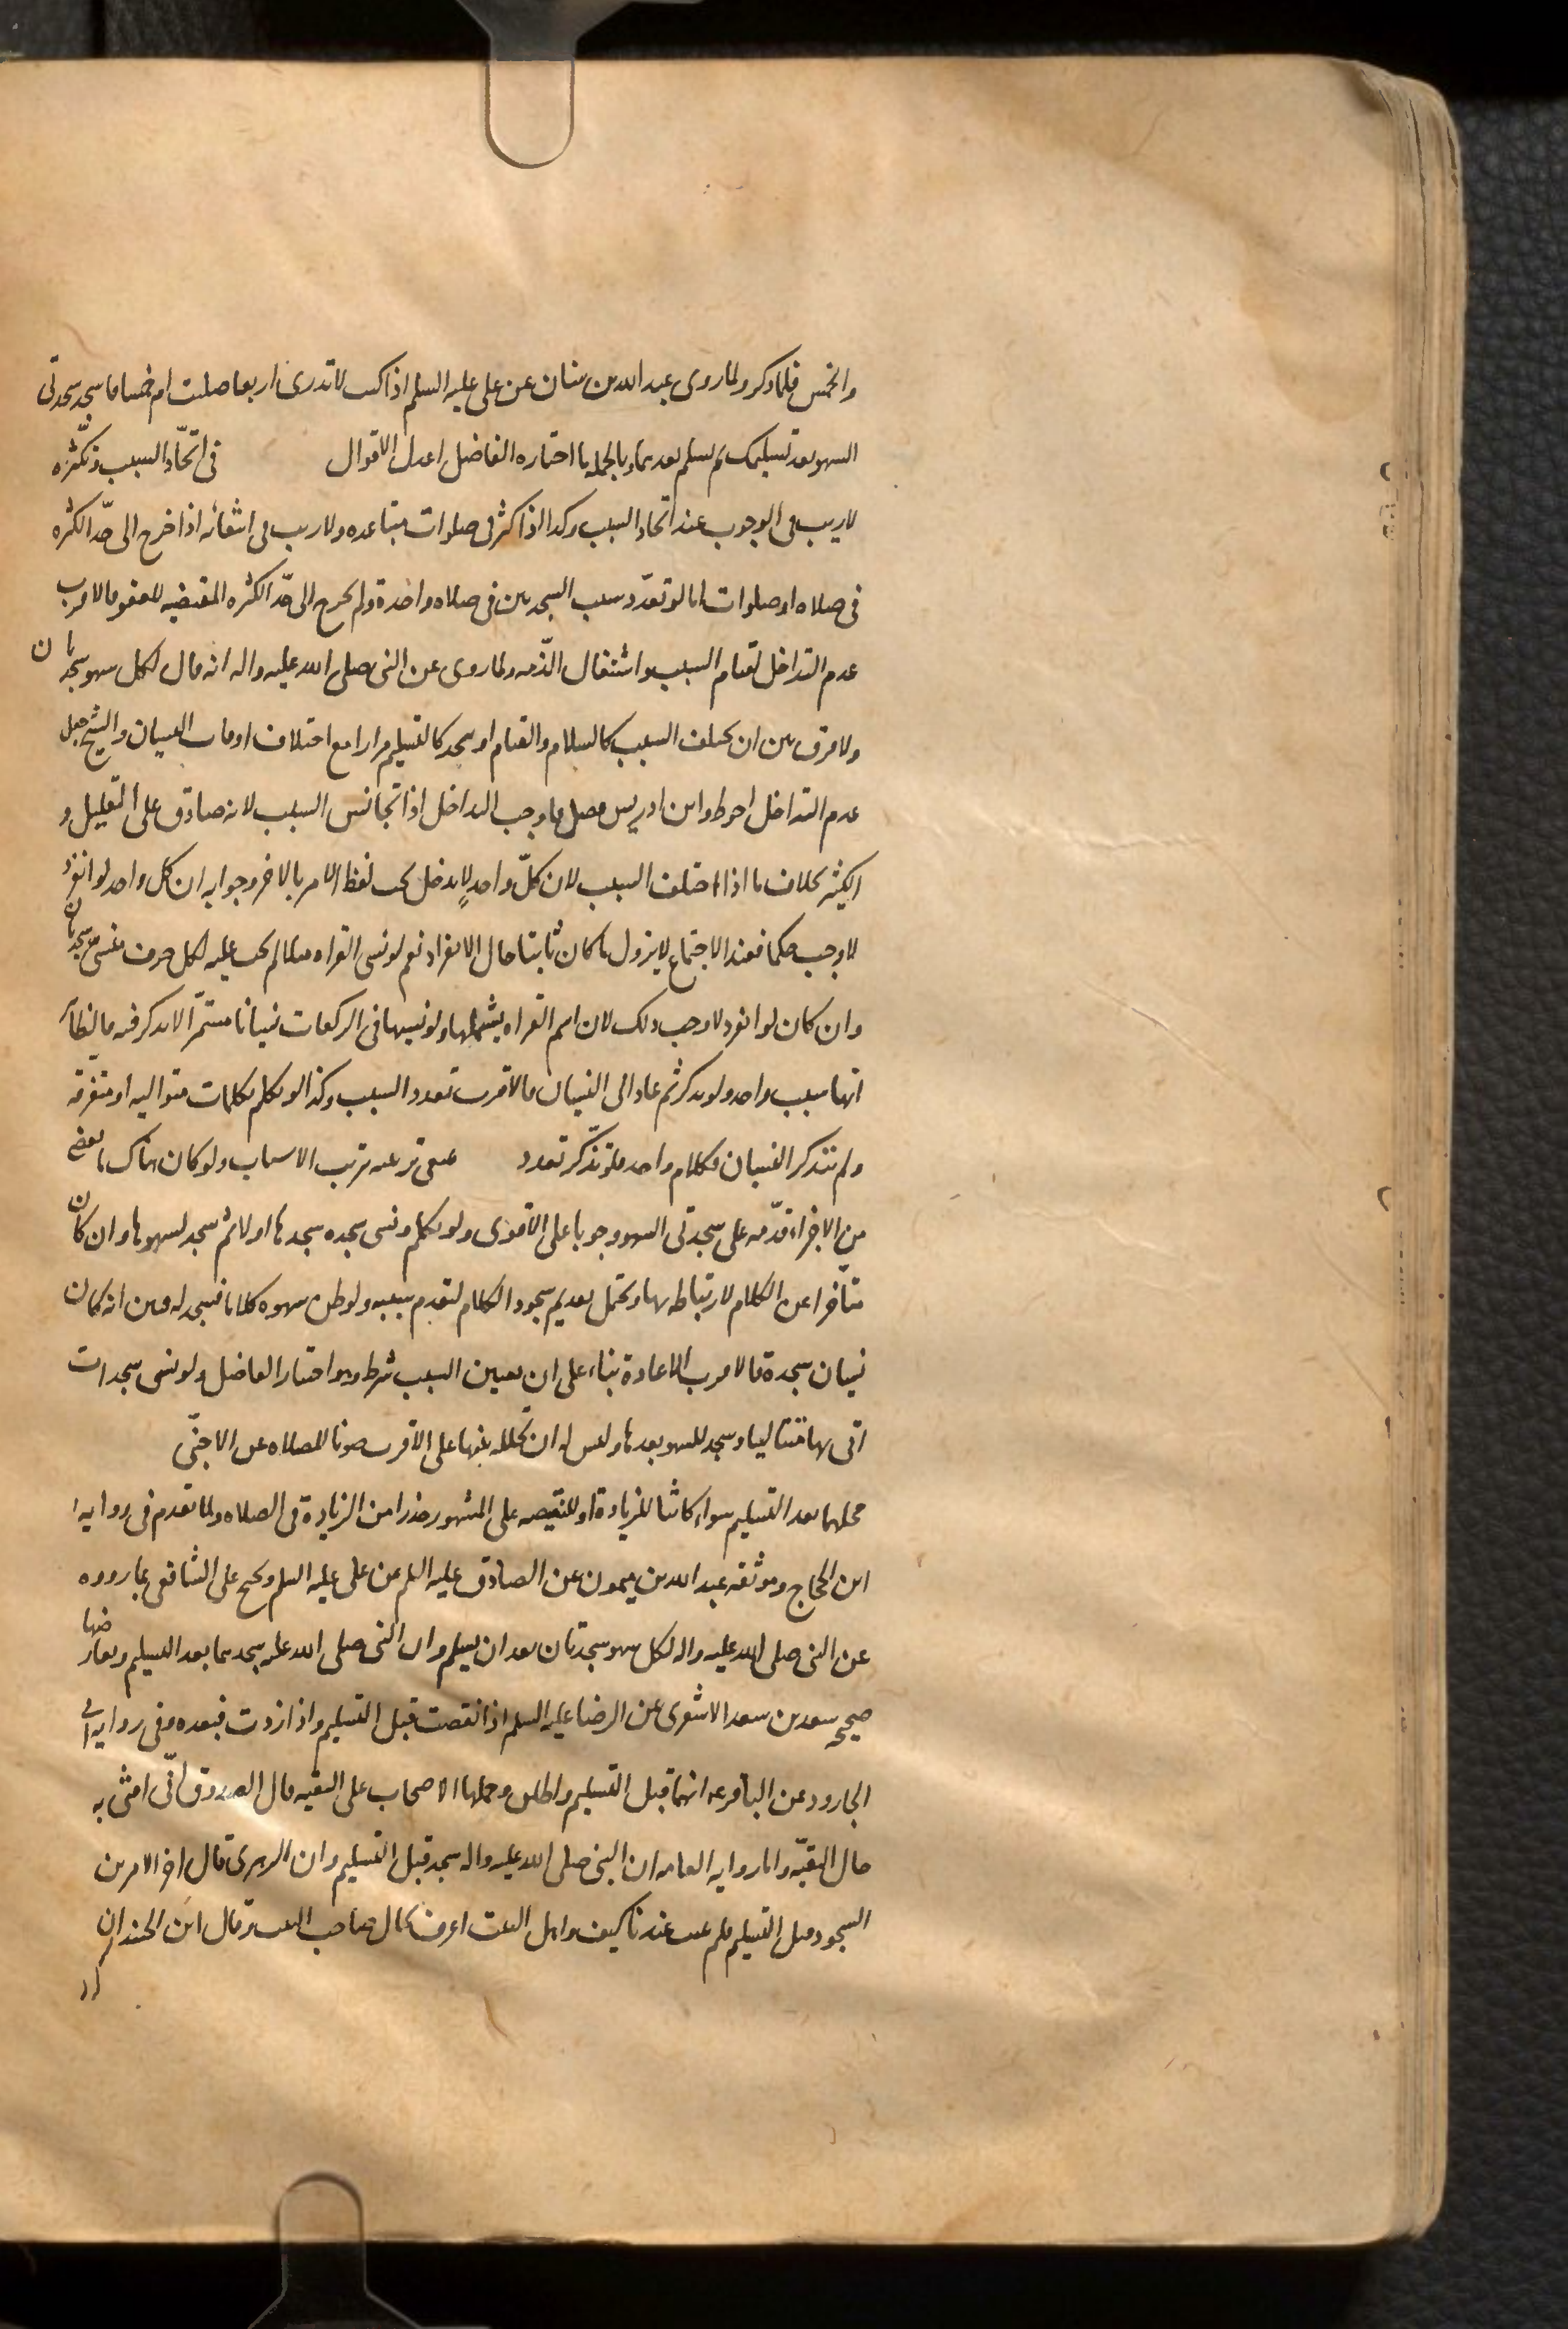 والخمس فلما ذكر ولما روى عبد الله بن سنان عن على عليه السلم اذا كنت لا تدرى اربعا صليت ام خمسا فاسجد سجدتى
السهو بعد تسليمك ثم سلم بعدهما وبالجمله ما اختاره الفاضل اعدل الاقوال فى اتحاد السبب وتكثره
لا ريب فى الوجوب عند اتحاد السبب وكذا اذا كثر فى صلوات متباعده ولا ريب فى انتفائه اذا خرج الى حد الكثره
فى صلاه او صلوات اما لو تعدد سبب السجدتين فى صلاه واحدة ولم يخرج الى حد الكثره المقتضيه للعفو فالاقرب
عدم التداخل لقيام السبب واشتغال الذمه ولما روى عن النبى صلى الله عليه واله انه قال لكل سهو سجدتان
ولا فرق بين ان يختلف السبب كالسلام والقيام او يتحد كالتسليم مرارا مع اختلاف اوقات النسيان والشيخ جعل
عدم التداخل احوط وابن ادريس فصل فاوجب التداخل اذا تجانس السبب لانه صادق على القليل و
الكثير بخلاف ما اذا اختلف السبب لان كل واحد لا يدخل تحت لفظ الامر بالاخر وجوابه ان كل واحد لو انفرد
لاوجب حكما فعند الاجتماع لا يزول ما كان ثابتا حال الانفراد نعم لو نسى القراه مثلا لم يجب عليه لكل حرف منسى سجدتان
وان كان لو انفرد لاوجب ذلك لان اسم القراه يشملها ولو نسيها فى الركعات نسيانا مستمرا لا يذكر فيه فالظاهر
انها سبب واحد ولو تذكر ثم عاد الى النسيان فالاقرب تعدد السبب وكذا لو تكلم بكلمات متواليه او متفرقه
ولم يتذكر النسيان فكلام واحد فلو تذكر تعدد ينبغى ترتيبه ترتب الاسباب ولو كان هناك ما يقضى
من الاجزاء قدمه على سجدتى السهو وجوبا على الاقوى ولو تكلم ونسى سجده سجدها اولا ثم سجد لسهوها وان كان
متأخرا عن الكلام لارتباطه بها ويحتمل تقديم سجود الكلام لتقدم سببه ولو ظن سهوه كلاما فسجد له فتبين انه كان
نسيان سجدة فالاقرب الاعادة بناء على ان تعيين السبب شرط وهو اختيار الفاضل ولو نسى سجدات
اتى بها متتاليا وسجد للسهو بعدها وليس له ان يخلله بينها على الاقرب صونا للصلاه عن الاجنبى
محلهما بعد التسليم سواء كانتا للزيادة او للنقيصه على المشهور حذرا من الزيادة فى الصلاه ولما تقدم فى روايه
ابن الحجاج وموثقه عبد الله بن ميمون عن الصادق عليه السلم عن على عليه السلم ويحتج على الشافعى بما رووه
عن النبى صلى الله عليه واله لكل سهو سجدتان بعد ان يسلم وان النبى صلى الله عليه سجدهما بعد التسليم ويعارضها
صحيح سعد بن سعد الاشعرى عن الرضا عليه السلم اذا نقصت قبل التسليم واذا زدت فبعده وفى روايه ابى
الجارود عن الباقر عه انهما قبل التسليم واطلق وحملها الاصحاب على التقيه قال الصدوق انى افتى به
حال التقيه واما روايه العامه ان النبى صلى الله عليه واله سجد قبل التسليم وان الزهرى قال اخر الامرين
السجود قبل التسليم فلم يثبت عندنا كيف واهل البيت اعرف بحال صاحب البيت وقال ابن الجنيد ان